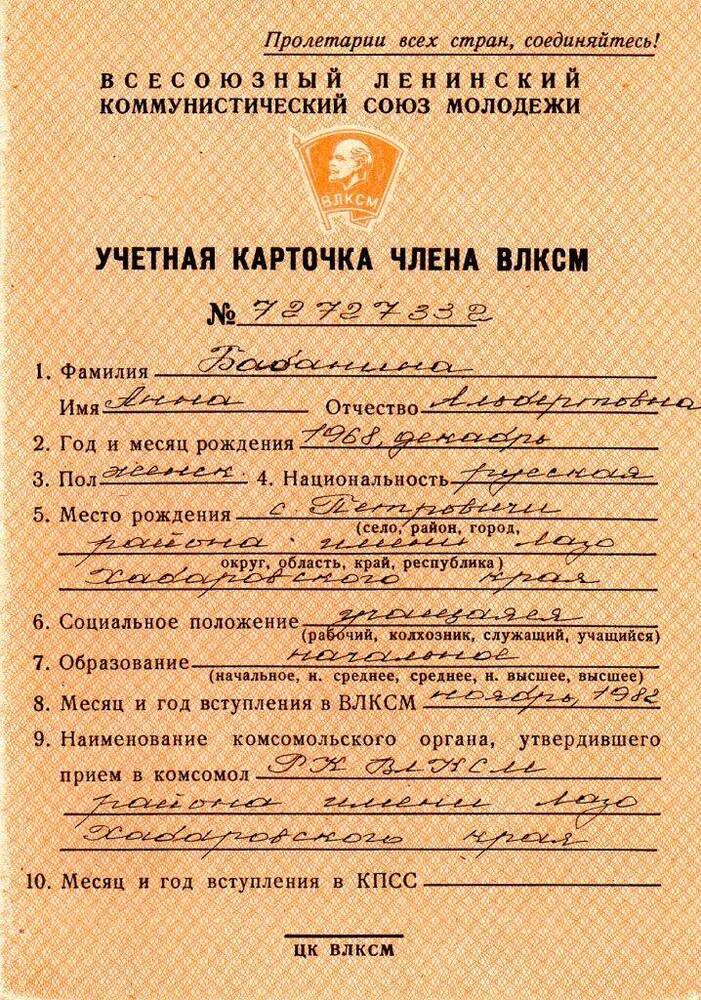 Пролетарии всех стран, соединяйтесь!
ВСЕСОЮЗНЫЙ ЛЕНИНСКИЙ
КОММУНИСТИЧЕСКИЙ СОЮЗ МОЛОДЕЖИ
ВЛКСМ
УЧЕТНАЯ КАРТОЧКА ЧЛЕНА ВЛКСМ
№ 72727332
1. Фамилия Бабанина
Имя Анна Отчество Альбертовна
2. Год и месяц рождения 1968, декабрь
3. Пол женск. 4. Национальность русская
5. Место рождения с. Петровичи
(село, район, город,
района имени Лазо
округ, область, край, республика)
Хабаровского края
6. Социальное положение учащаяся
(рабочий, колхозник, служащий, учащийся)
7. Образование начальное
(начальное, н. среднее, среднее, н. высшее, высшее)
8. Месяц и год вступления в ВЛКСМ ноябрь, 1982
9. Наименование комсомольского органа, утвердившего
прием в комсомол РК ВЛКСМ
района имени Лазо
Хабаровского края
10. Месяц и год вступления в КПСС
ЦК ВЛКСМ